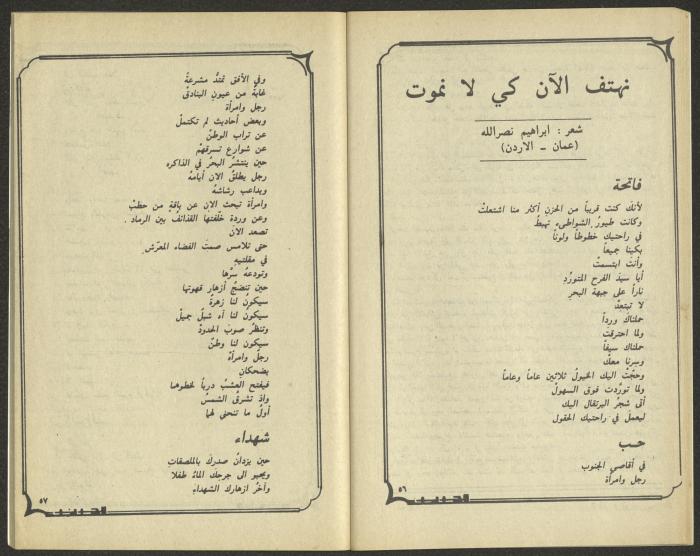 نهتف الآن كي لا نموت
شعر : ابراهيم نصرالله
(عمان - الاردن)
فاتحة
لأنك كنت قريباً من الحزنِ أكثر منا اشتعلتْ
وكانت طيورُ الشواطىءِ تهبطُ
في راحتيكَ خطوطاً ولوناً
بكينا جميعاً
وأنتَ ابتسمتْ
أيا سيدَ الفرحِ المتورّد
ناراً على جبهة البحرِ
لا تبتعدْ
حملناكَ ورداً
ولما احترقت
حملناك سيفاً
وسرنا معكْ
وحجّتْ اليك الخيولُ ثلاثين عاماً وعاماً
ولما تورّدت فوق السهولْ
أتى شجرُ البرتقال اليك
ليعملَ في راحتيك الحقول
حب
في أقاصي الجنوب
رجل وامرأة
٥٦
وفي الأفق تمتدُّ مشرعةً
غابةٌ من عيونِ البنادقْ
رجل وامرأة
وبعض أحاديث لم تكتملْ
عن تراب الوطنْ
عن شوارع تسرقهمْ
حين ينتشرُ البحرُ في الذاكره
رجل يطلقُ الان أيامهُ
ويداعب رشاشهُ
وامرأة تبحث الان عن باقةٍ من حطبْ
وعن وردة خلّفتها القذائفُ بين الرماد .
تصعد الان
حتى تلامس صمتَ الفضاء المعرّش
في مقلتيهِ
وتودعهُ سرَّها
حين تنضجُ أزهار قهوتها
سيكونُ لنا زهرةٌ
سيكونُ لنا آه شبلٌ جميلْ
وتنظرُ صوبَ الحدودْ
سيكون لنا وطنٌ
رجلٌ وامرأةْ
يضحكانِ
فيفتح العشبُ درباً لخطوهما
وإذ تشرقُ الشمسُ
أولُ ما تنحني لهما
شهداء
حين يزدانُ صدركَ بالملصقاتِ
ويحبو الى جرحِك الماءُ طفلا
وآخرُ ازهارك الشهداءِ
٥٧